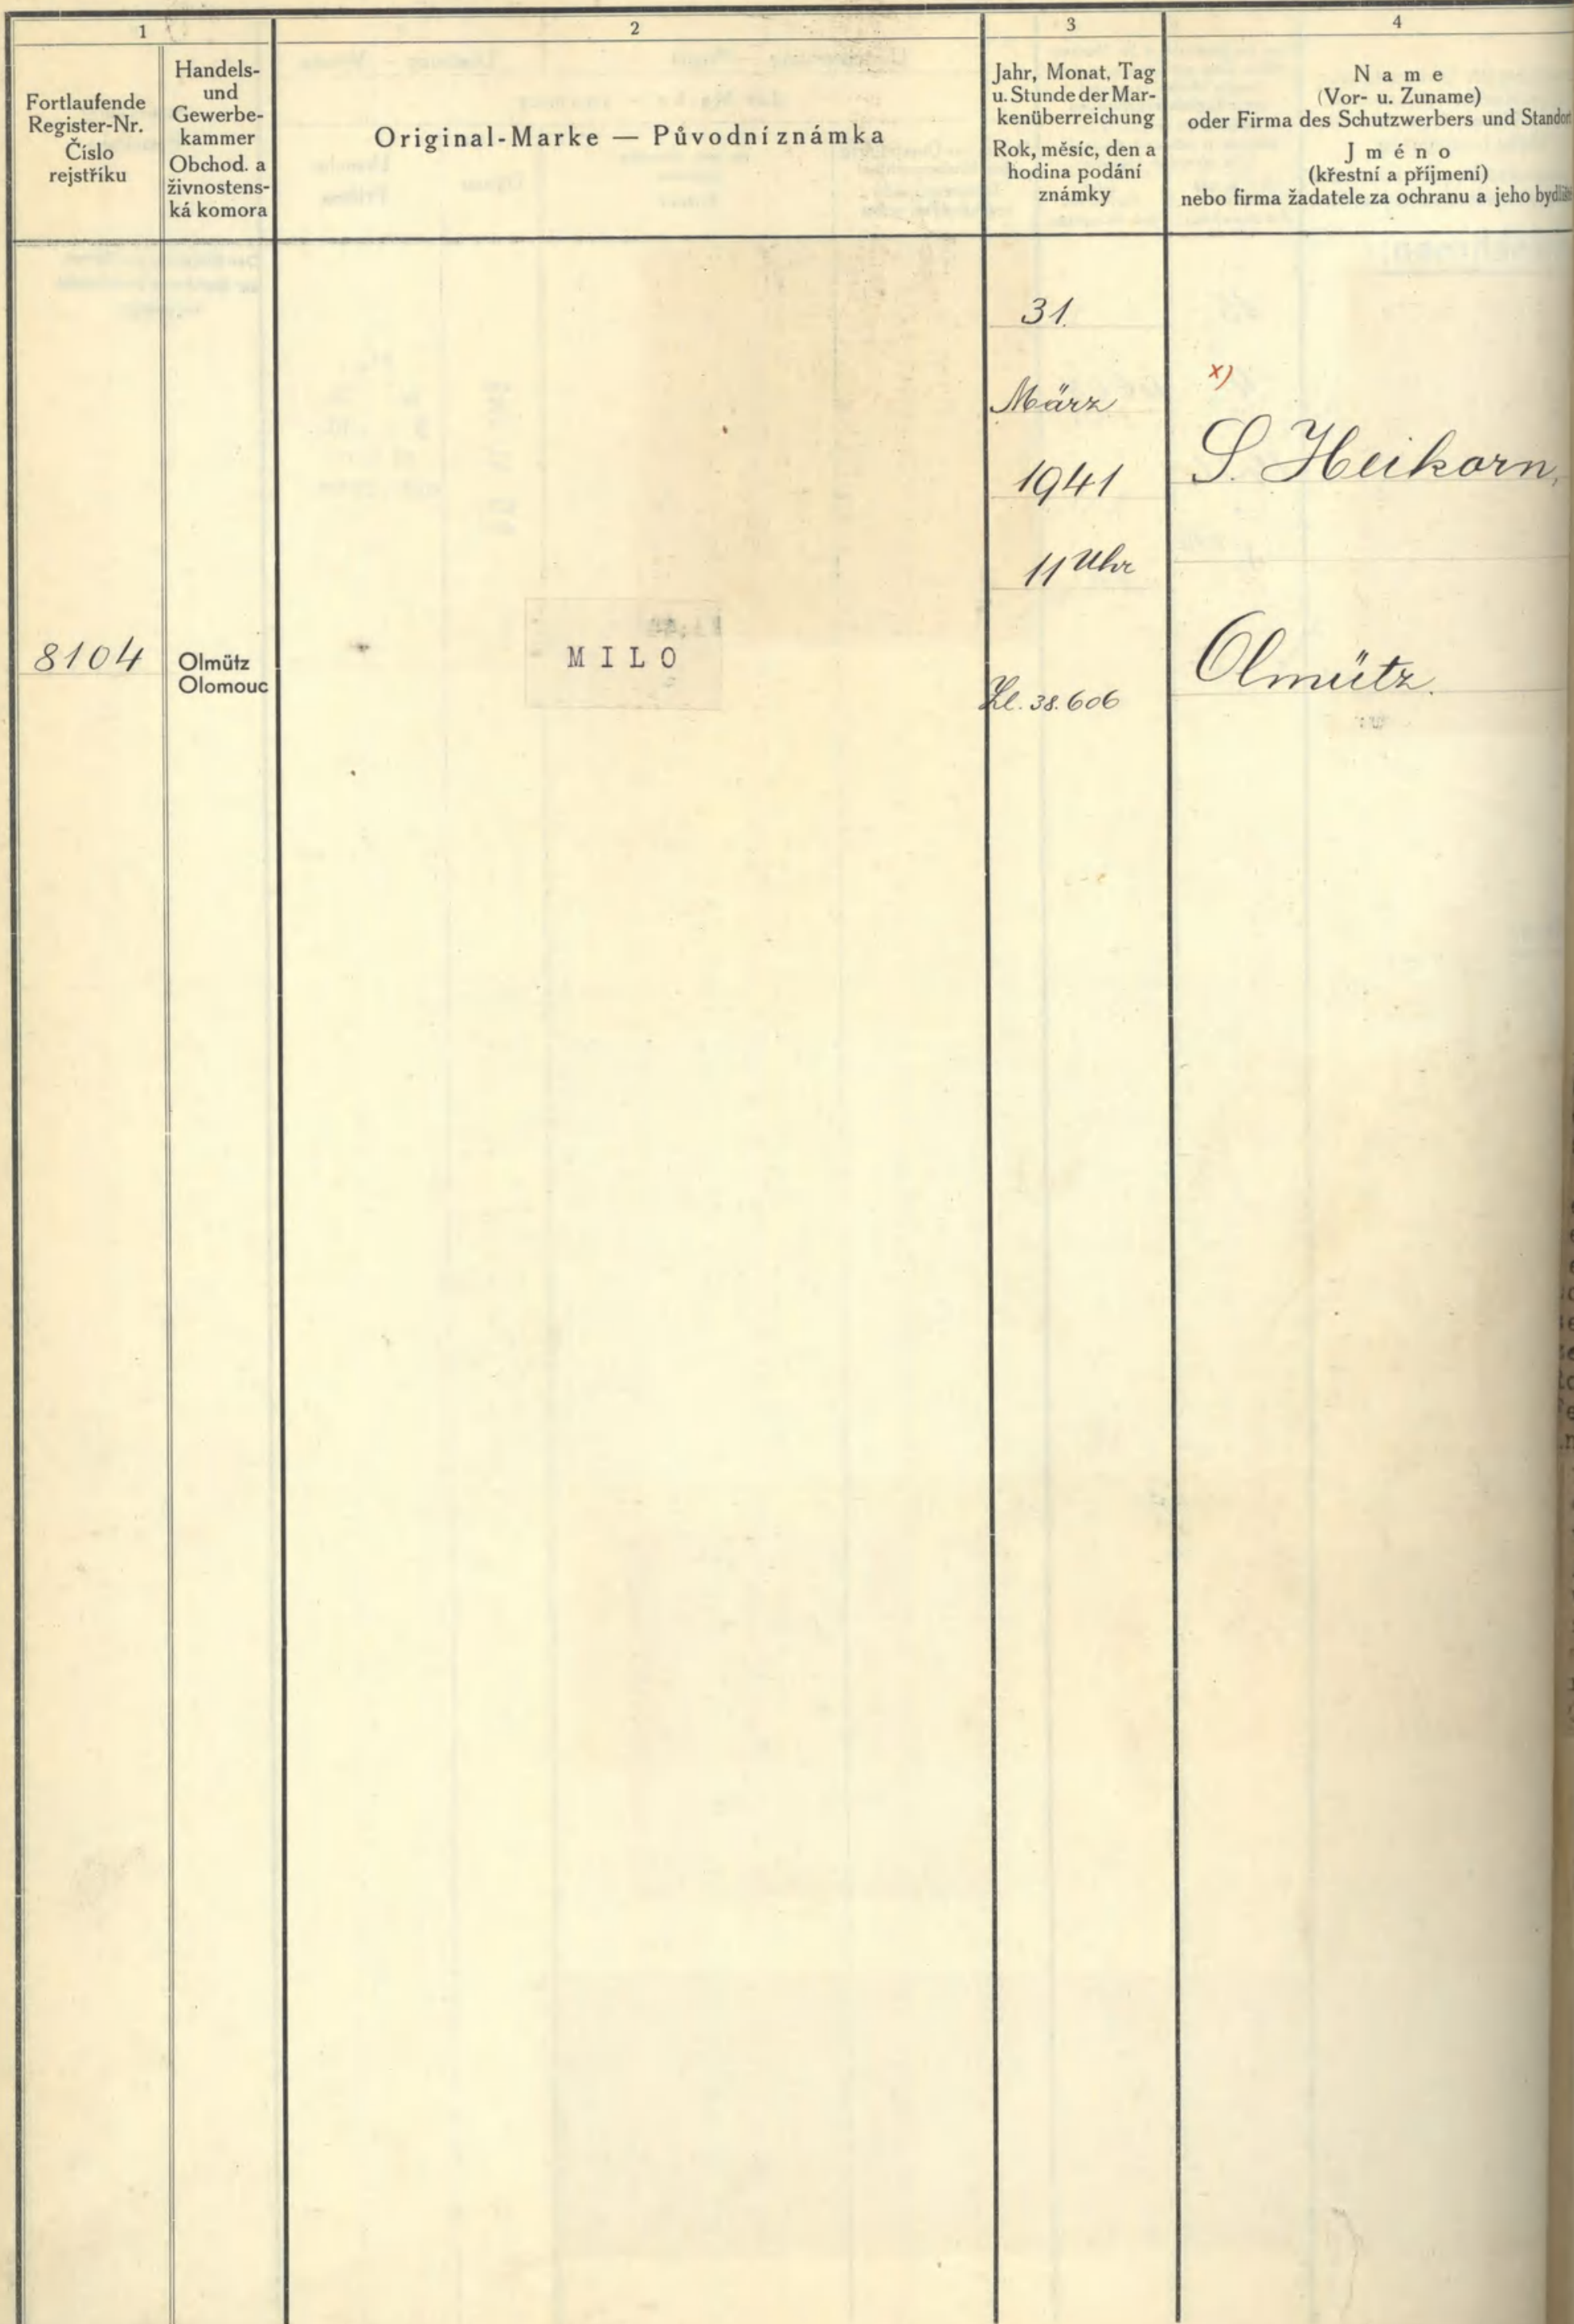 1
2
3
4
Fortlaufende
Register-Nr.
Číslo
rejstříku
Handels-
und
Gewerbe-
kammer
Obchod. a
živnostens-
ká komora
Original-Marke — Původní známka
Jahr, Monat, Tag
u. Stunde der Mar-
kenüberreichung
Rok, měsíc, den a
hodina podání
známky
Name
(Vor- u. Zuname)
oder Firma des Schutzwerbers und Standort
Jméno
(křestní a příjmení)
nebo firma žadatele za ochranu a jeho
31.
März
1941
11 Uhr
Zl. 38.606
x)
S. Heikorn,
Olmütz.
8104
Olmütz
Olomouc
MILO